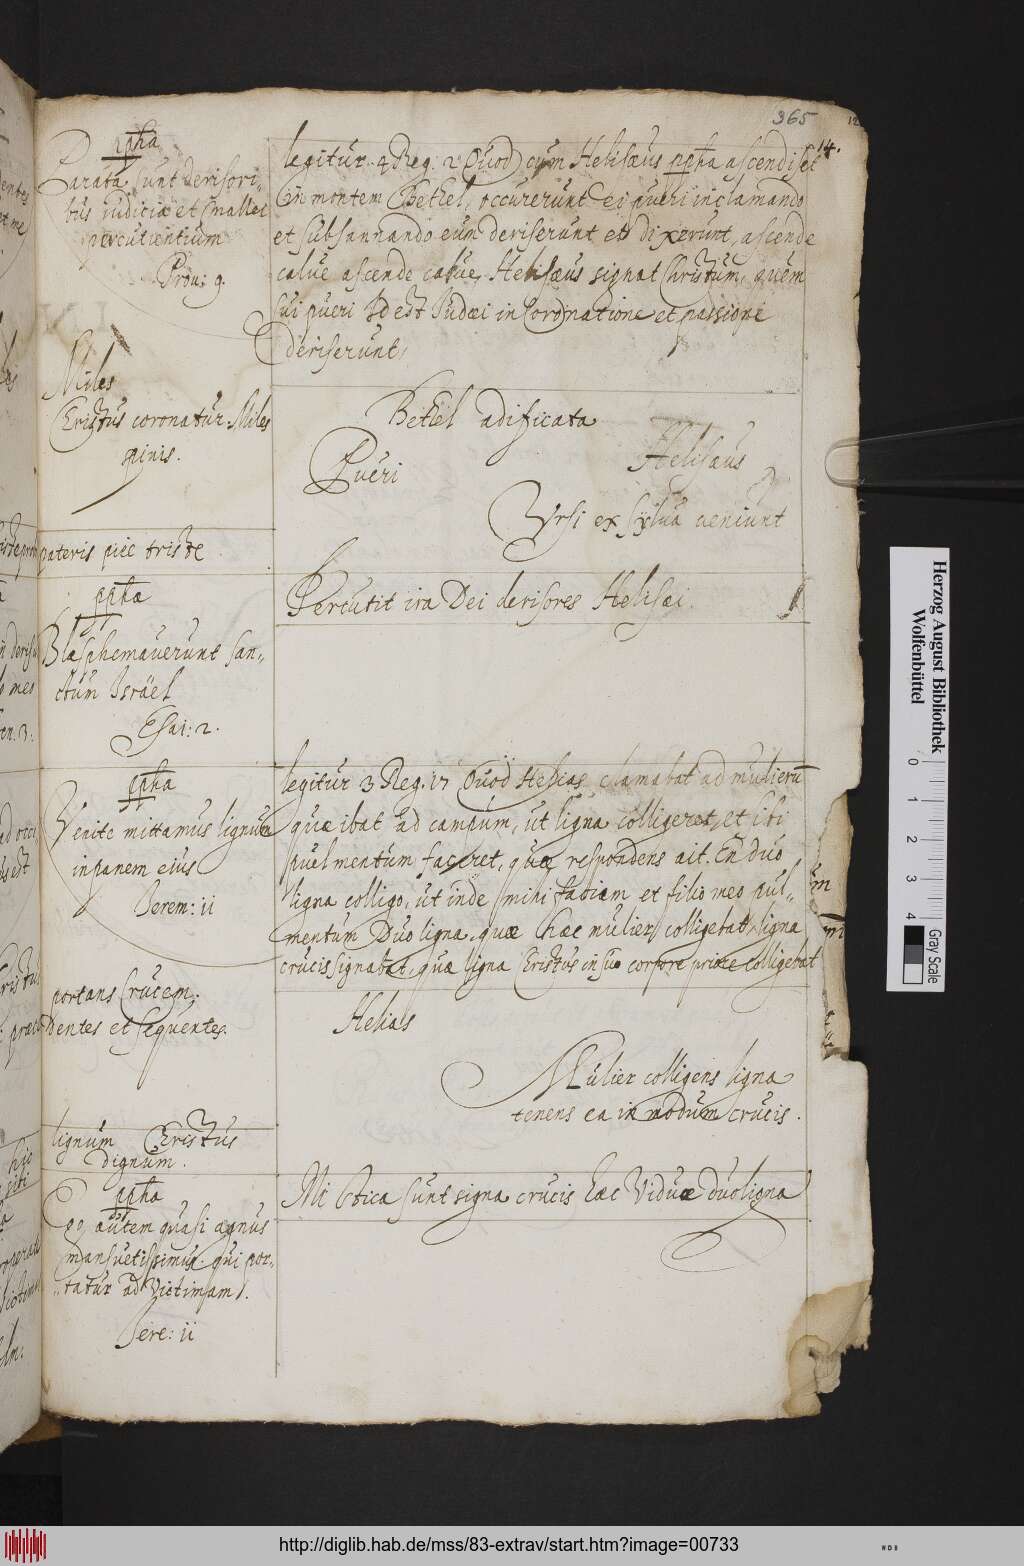 365
14.
ppha
Parata sunt derisori-
bus iudicia et mallei
percutientium
Prou: 9.
legitur 4 Reg. 2 Quod cum Helisæus ppha ascendiset
in montem Bethel, occurerunt ei pueri inclamando
et subsannando eum deriserunt et dixerunt, ascende
calue ascende calue, Helisæus signat Christum, quem
sui pueri Id est Iudæi in Coronatione et passione
deriserunt,
Miles
Cristus coronatur. Miles
spinis.
Bethel ædificata
Pueri Helisæus
Vrsi ex sylua veniunt
pateris piee triste
Percutit ira Dei derisores Helisæi.
ppha
Blasphemauerunt san-
ctum Israël
Esai: 2.
ppha
Venite mittamus lignum
in panem eius
Ierem: ii
legitur 3 Reg. 17 Quod Helias clamabat ad mulierū
quæ ibat ad campum, ut ligna colligeret, et ibi
pulmentum faceret, quæ respondens ait. En duo
ligna colligo, ut inde mihi faciam et filio meo pul-
mentum Duo ligna, quæ hæc mulier colligebat, ligna
crucis signabat, quæ ligna Cristus in suo corpore colligebat
portans Crucem.
Dentes et sequentes.
Helias
Mulier colligens ligna
tenens ea in modum crucis.
lignum Cristus
dignum.
Mi stica sunt signa crucis hæc Viduæ duo ligna
ppha
Ego autem quasi agnus
mansuetissimus qui por-
tatur ad Victimam.
Iere: ii
Herzog August Bibliothek
Wolfenbüttel
0 1 2 3 4
Gray Scale
http://diglib.hab.de/mss/83-extrav/start.htm?image=00733